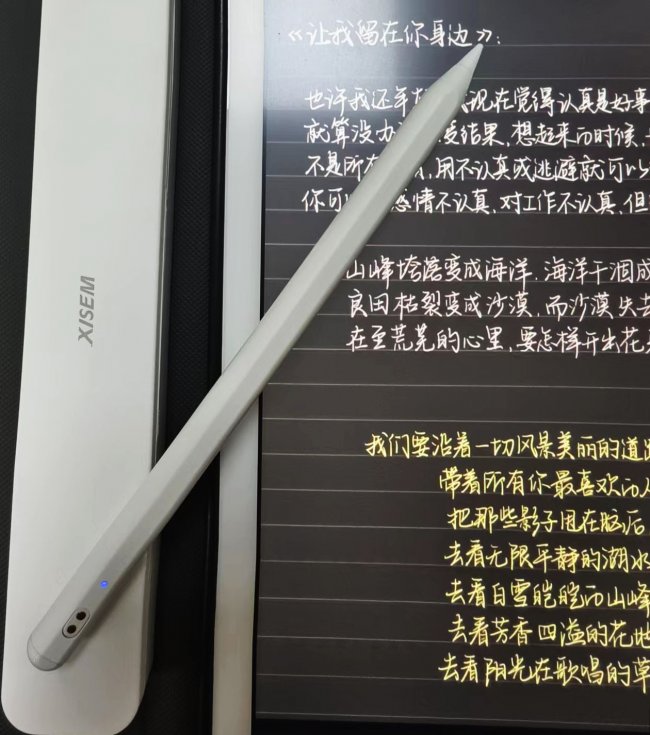 XISEM
《让我留在你身边》:
也许我还年 现在觉得认真是好事
就算没办 结果,想起来的时候,
不是所有 用不认真或逃避就可以
你可 感情不认真,对工作不认真,但
山峰垮塌变成海洋,海洋干涸成
良田枯裂变成沙漠,而沙漠失去
在至荒芜的心里,要怎样开出花
我们要沿着一切风景美丽的道
带着所有你最喜欢的人
把那些影子甩在脑后
去看无限平静的湖水
去看白雪皑皑的山峰
去看芳香四溢的花地
去看阳光在歌唱的草